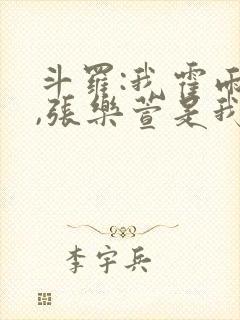 斗罗:我霍雨
,张乐萱是我
李宇兵